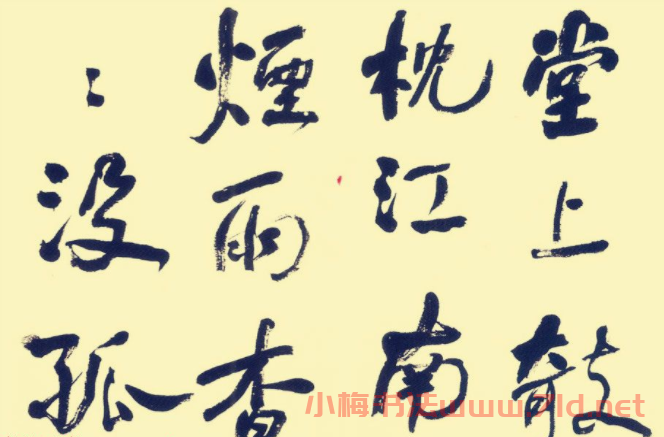 堂上敧
枕江南
煙雨杳
〻没孤
小梅书法www.7ld.net